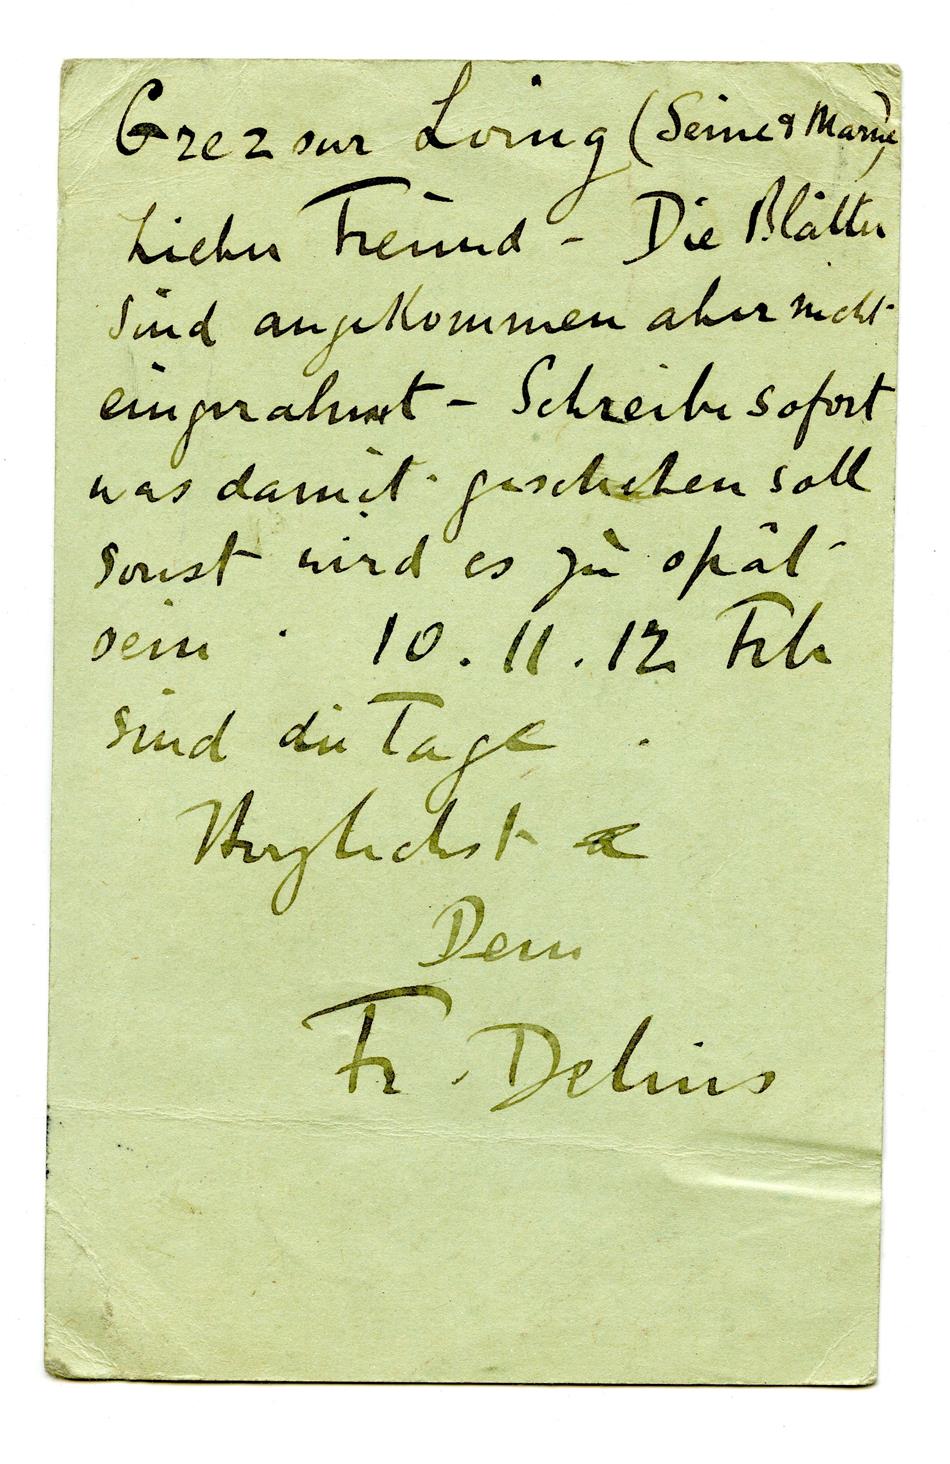 Grez sur Loing (Seine & Marne)
Lieber Freund – Die Blätter
sind angekommen aber nicht
eingerahmt – Schreibe sofort
was damit geschehen soll
sonst wird es zu spät
sein . 10 . 11 . 12 Feb
sind die Tage .
Herzlichst
Dein
Fr. Delius